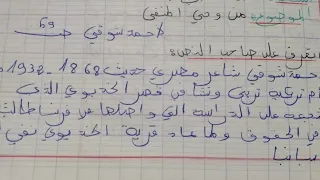 الموضوع: من وحي المنفى
لأحمد شوقي ص 69
التعرف على صاحب النص:
أحمد شوقي شاعر مصري حديث 1868 - 1932
تربى ونشأ في قصر الخديوي الذي
شجعه على الدراسة التي واصلها في فرنسا طالبا
في الحقوق ولما عاد قربه الخديوي نفي
إسبانيا